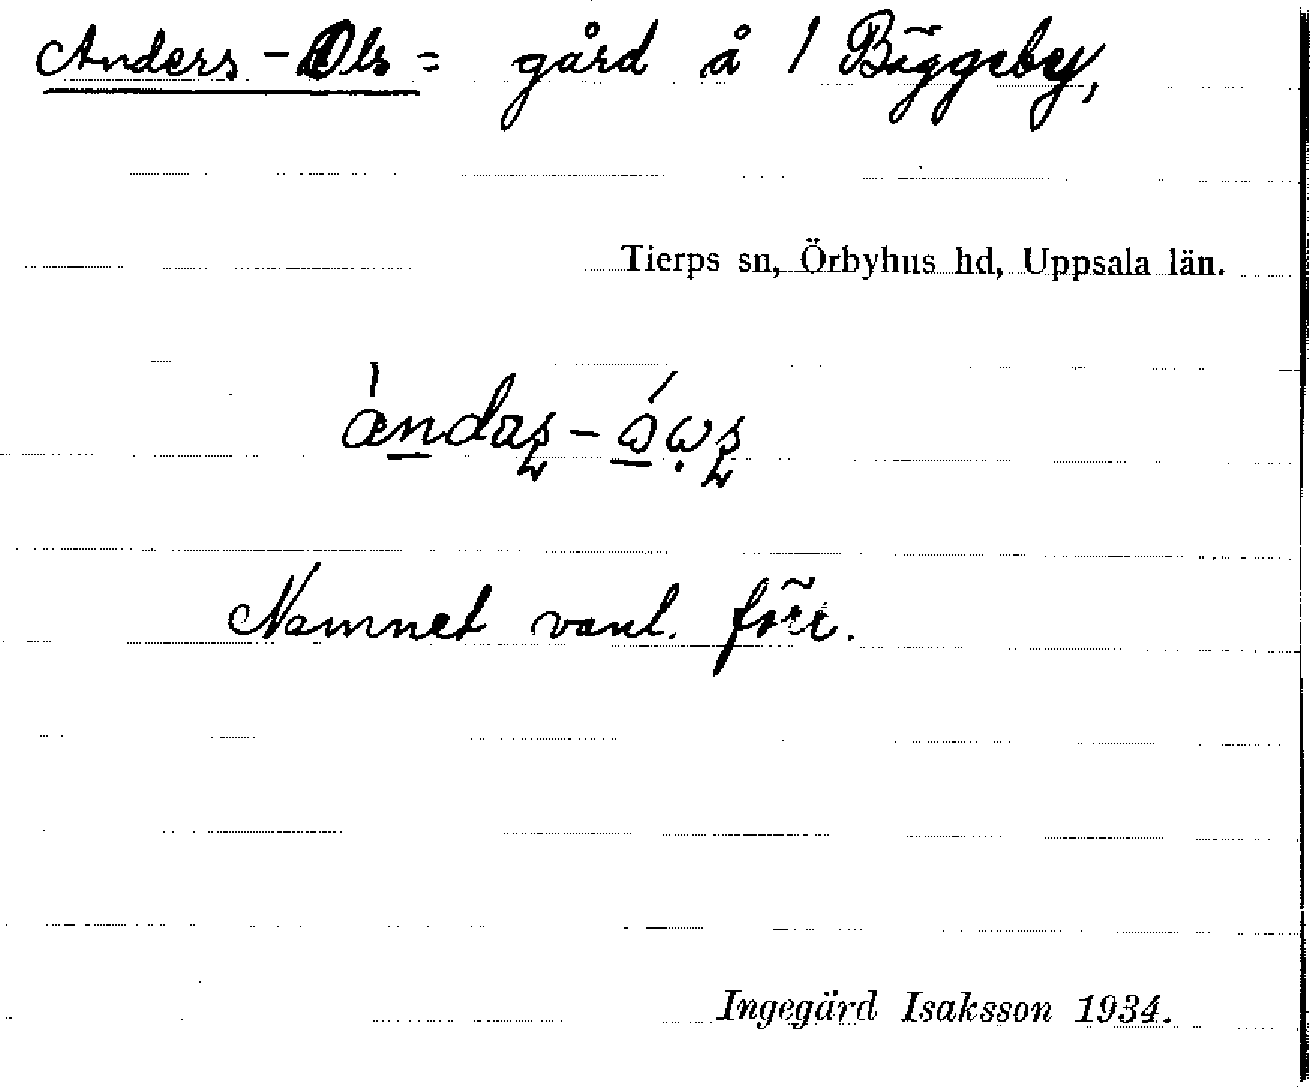 Anders-Ols = gård å 1 Bäggeby,
Tierps sn, Örbyhus hd, Uppsala län.
Namnet vanl. förr.
Ingegärd Isaksson 1934.